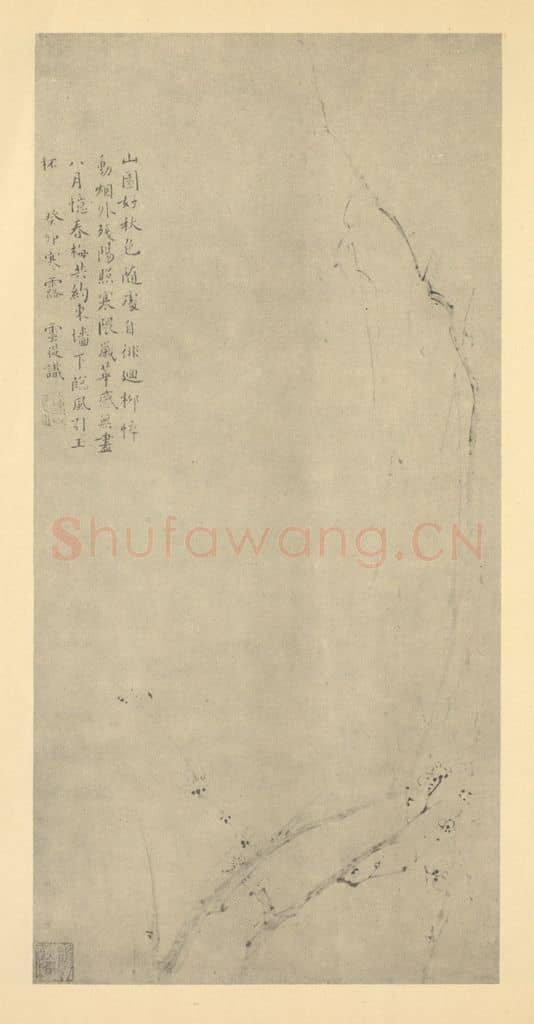 山園好秋色随處自徘廻柳悴
動烟外残陽照寒隈歲華感無盡
八月憶春梅共約東墻下臨風引玉
杯 癸卯寒露 雲從識
Shufawang.CN